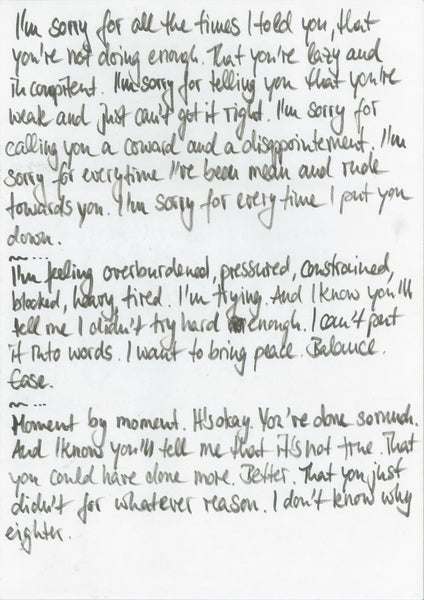 I'm sorry for all the times I told you, that
you're not doing enough. That you're lazy and
incompitent. I'm sorry for telling you that you're
weak and just can't get it right. I'm sorry for
calling you a coward and a disappointement. I'm
sorry for everytime I've been mean and rude
towards you. I'm sorry for every time I put you
down.
~~...
I'm feeling overburdened, pressured, constrained,
blocked, heavy, tired. I'm trying. And I know you'll
tell me I didn't try hard enough. I can't put
it into words. I want to bring peace. Balance.
Ease.
~~...
Moment by moment. It's okay. You've done so much.
And I know you'll tell me that it's not true. That
you could have done more. Better. That you just
didn't for whatever reason. I don't know why
eighter.